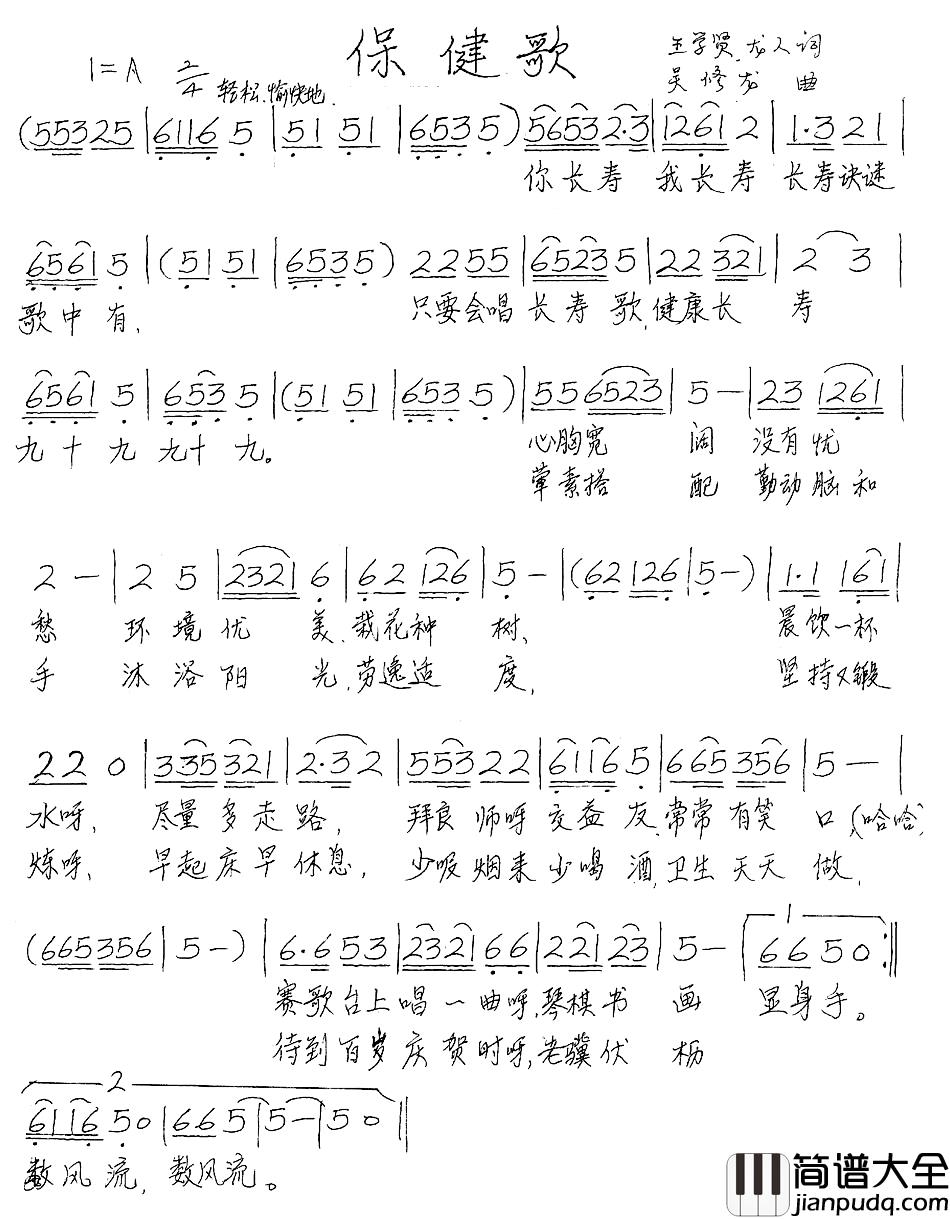 保健歌
1=A 2/4 轻松、愉快地
王学贤、龙人词
吴修龙 曲
(553325|6116 5|51 51|6535)56532·3|1261 2|1·3 21|
你长寿 我长寿 长寿诀谜
6561 5|(51 51|6535)2255|65235|22 321|2 3|
歌中有, 只要会唱长寿歌,健康长 寿
6561 5|653 5|(51 51|653 5)|556523|5-|23 1261|
九十九 九十九。 心胸宽 阔 没有忧
荤素搭 配 勤动脑和
2-|2 5|2321 6|62 126|5-|(62126|5-)|1·1 161|
愁 环境优 美、栽花种 树、 晨饮一杯
手 沐浴阳 光,劳逸适 度, 坚持又锻
22 0|335321|2·32|55322|6116 5|665356|5-|
水呀、 尽量多走路, 拜良师呀交益友,常常有笑 口(哈哈)
炼呀、 早起床早休息, 少吸烟来少喝酒,卫生天天做,
(665356|5-)|6·653|232166|221 23|5-|1 6650:||
赛歌台上唱一曲呀,琴棋书 画 显身手。
待到百岁庆贺时呀,老骥伏 枥
2
6116 50|665|5-|50||
数风流,数风流。
简谱大全
jianpudq.com